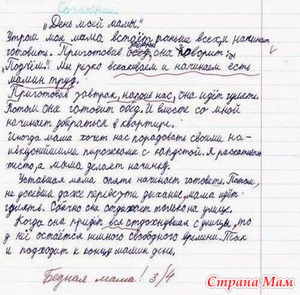 Сочинение.
„День моей мамы".
Утром моя мама встаёт раньше всех и начинает
готовить. Приготовив обед, она говорит:
„Подъём". Мы резко вскакиваем и начинаем есть
мамин труд.
Приготовив завтрак, напоив нас, она идёт гулять.
Потом она готовит обед. И вместе со мной
начинает убираться в квартире.
Иногда мама хочет нас порадовать своими на-
ивкуснейшими пирожками с капустой. Я раскатываю
тесто, а мама делает начинку.
Уставшая мама опять начинает готовить. Потом,
не успевая даже перевести дыхание, мама идёт
гулять. Обычно она отдыхает только на улице.
Когда она придёт вся отдохнувшая с улицы, то
у неё остаётся немного свободного времени. Так
и подходит к концу мамин день.
Бедная мама! 3/4
Страна Мам